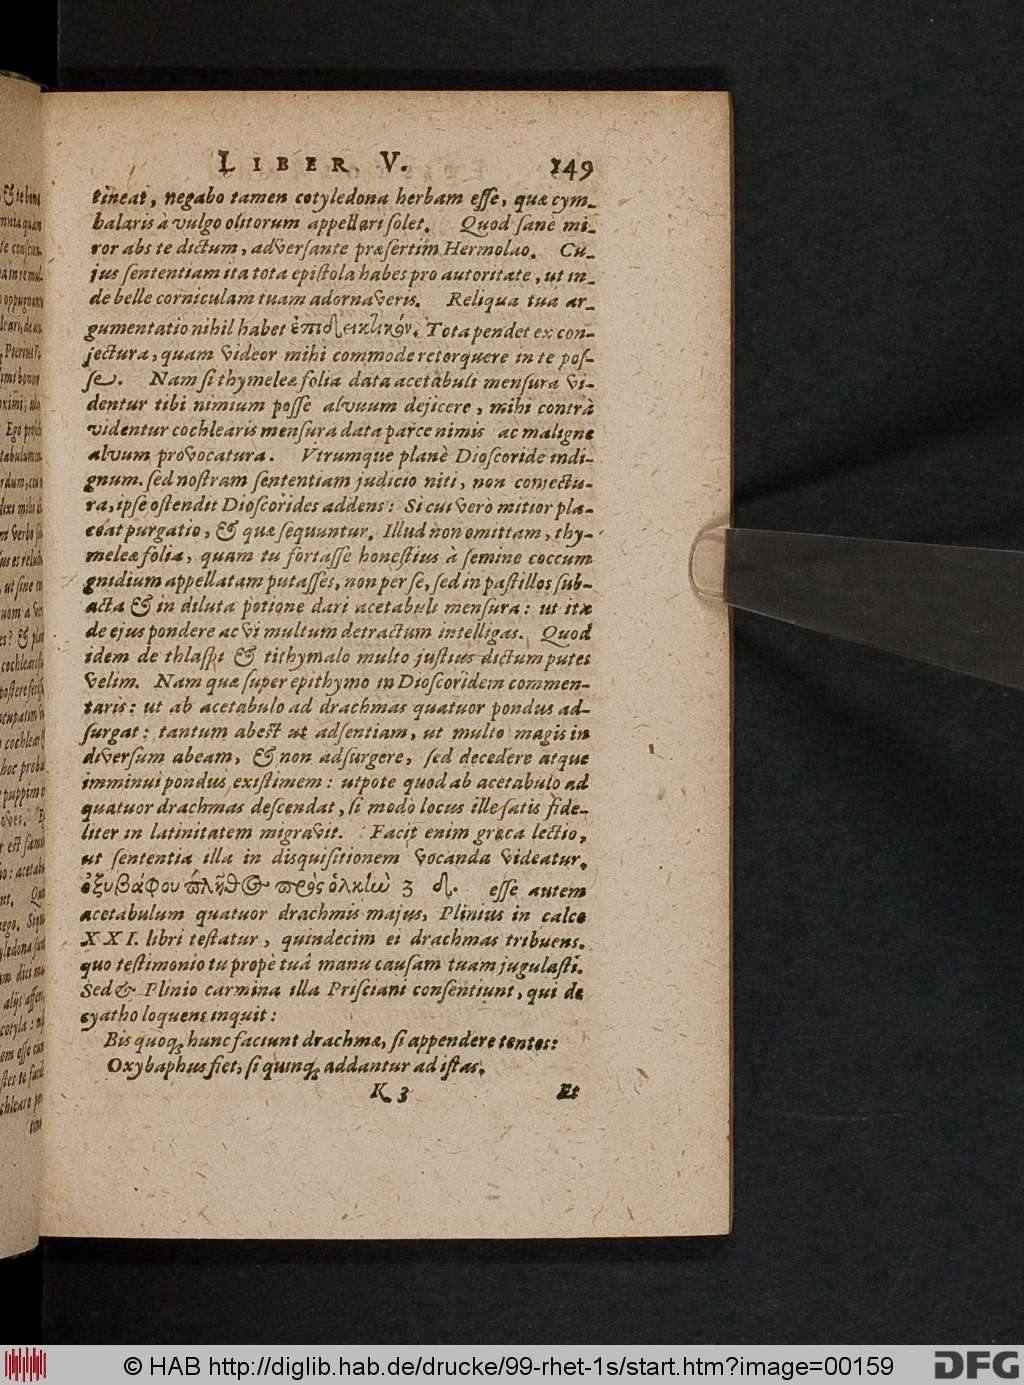 LIBER V. 149
tineat, negabo tamen cotyledona herbam esse, quæ cym-
balaris à vulgo olitorum appellari solet. Quod sanè mi-
ror abs te dictum, adversante præsertim Hermolao. Cu-
jus sententiam ita tota epistola habes pro autoritate, ut in-
de belle corniculam tuam adornaveris. Reliqua tua ar-
gumentatio nihil habet ἐπιδεικτικόν. Tota pendet ex con-
jectura, quam videor mihi commode retorquere in te pos-
se. Nam si thymeleæ folia data acetabuli mensura vi-
dentur tibi nimium posse alvuum dejicere, mihi contrà
videntur cochlearis mensura data parce nimis ac maligne
alvum provocatura. Vtrumque planè Dioscoride indi-
gnum. sed nostram sententiam judicio niti, non conjectu-
ra, ipse ostendit Dioscorides addens: Si cui verò mitior pla-
ceat purgatio, & quæ sequuntur. Illud non omittam, thy-
meleæ folia, quam tu fortasse honestius à semine coccum
gnidium appellatam putasses, non per se, sed in pastillos sub-
acta & in diluta potione dari acetabuli mensura: ut ita
de ejus pondere ac vi multum detractum intelligas. Quod
idem de thlaspi & tithymalo multo justius dictum putes
velim. Nam quæ super epithymo in Dioscoridem commen-
taris: ut ab acetabulo ad drachmas quatuor pondus ad-
surgat: tantum abest ut adsentiam, ut multo magis in
diversum abeam, & non adsurgere, sed decedere atque
imminui pondus existimem: utpote quod ab acetabulo ad
quatuor drachmas descendat, si modo locus ille satis fide-
liter in latinitatem migravit. Facit enim græca lectio,
ut sententia illa in disquisitionem vocanda videatur.
ὀξυβάφου πλῆθος πρὸς ὁλκὴν ʒ δ. esse autem
acetabulum quatuor drachmis majus, Plinius in calce
XXI. libri testatur, quindecim ei drachmas tribuens.
quo testimonio tu propè tuâ manu causam tuam jugulasti.
Sed & Plinio carmina illa Prisciani consentiunt, qui de
cyatho loquens inquit:
Bis quoq; hunc faciunt drachmæ, si appendere tentes:
Oxybaphus fiet, si quinq; addantur ad istas.
K 3 Et
© HAB http://diglib.hab.de/drucke/99-rhet-1s/start.htm?image=00159
DFG